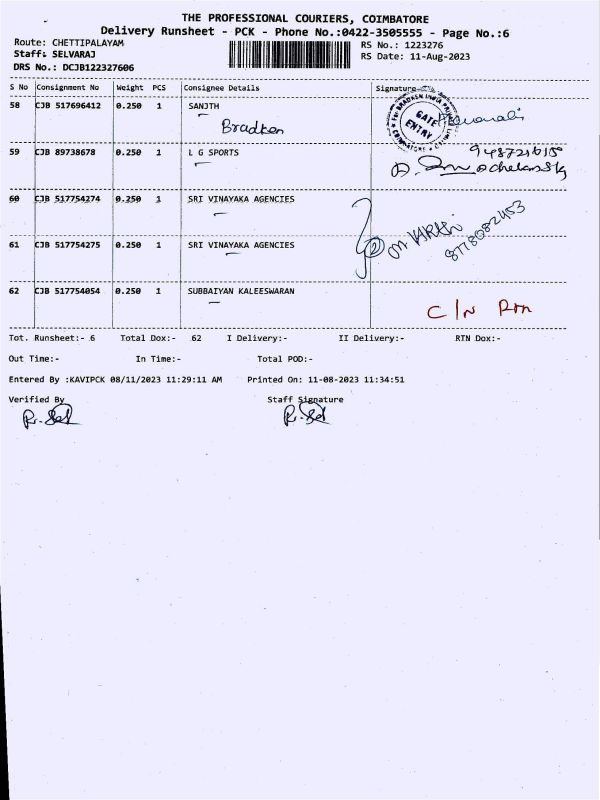 THE PROFESSIONAL COURIERS, COIMBATORE
Delivery Runsheet - PCK - Phone No.:0422-3505555 - Page No.:6
Route: CHETTIPALAYAM
RS No.: 1223276
Staff: SELVARAJ
RS Date: 11-Aug-2023
DRS No.: DCJB122327606
S No Consignment No Weight PCS Consignee Details Signature
58 CJB 517696412 0.250 1 SANJTH
Bradken
GATE ENTRY
59 CJB 89738678 0.250 1 L G SPORTS
60 CJB 517754274 0.250 1 SRI VINAYAKA AGENCIES
61 CJB 517754275 0.250 1 SRI VINAYAKA AGENCIES
8778082453
62 CJB 517754054 0.250 1 SUBBAIYAN KALEESWARAN
C/N Rtn
Tot. Runsheet:- 6 Total Dox:- 62 I Delivery:- II Delivery:- RTN Dox:-
Out Time:- In Time:- Total POD:-
Entered By :KAVIPCK 08/11/2023 11:29:11 AM Printed On: 11-08-2023 11:34:51
Verified By Staff Signature